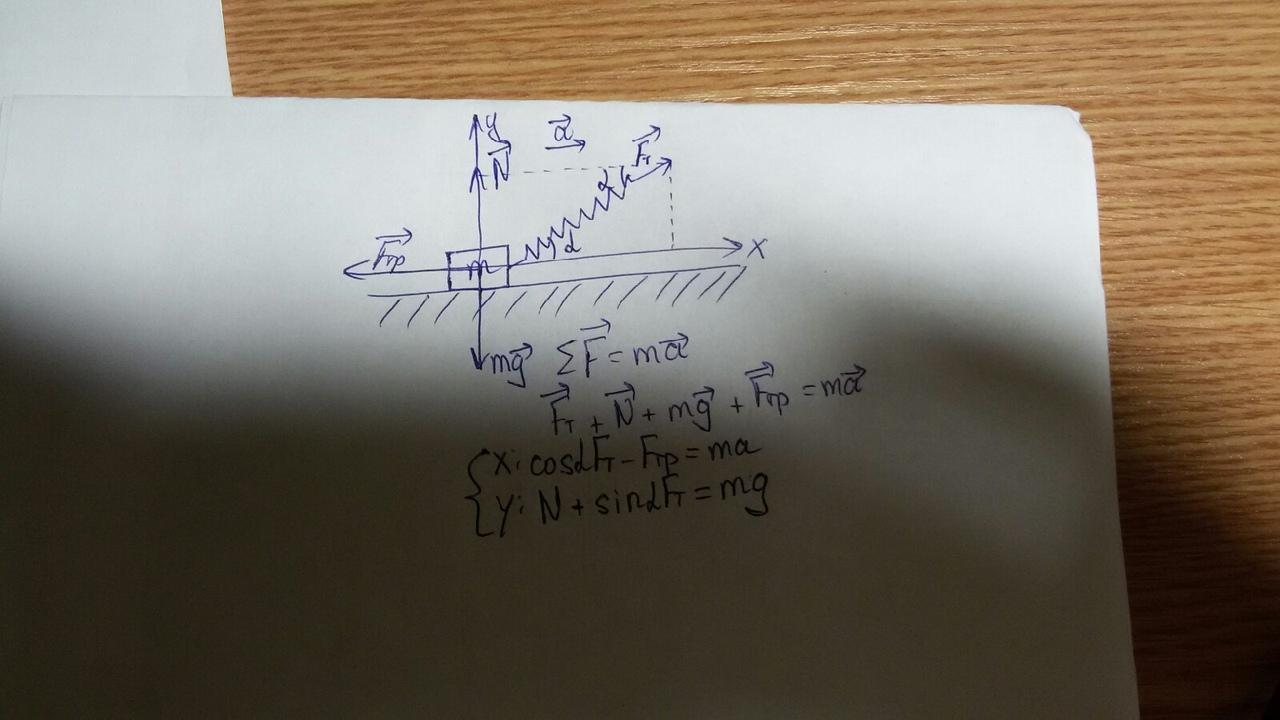 y
a⃗
N⃗
F⃗т
α
F⃗тр
m
α
x
mg⃗
ΣF⃗ = ma⃗
F⃗т + N⃗ + mg⃗ + F⃗тр = ma⃗
{ x: cosαFт - Fтр = ma
y: N + sinαFт = mg